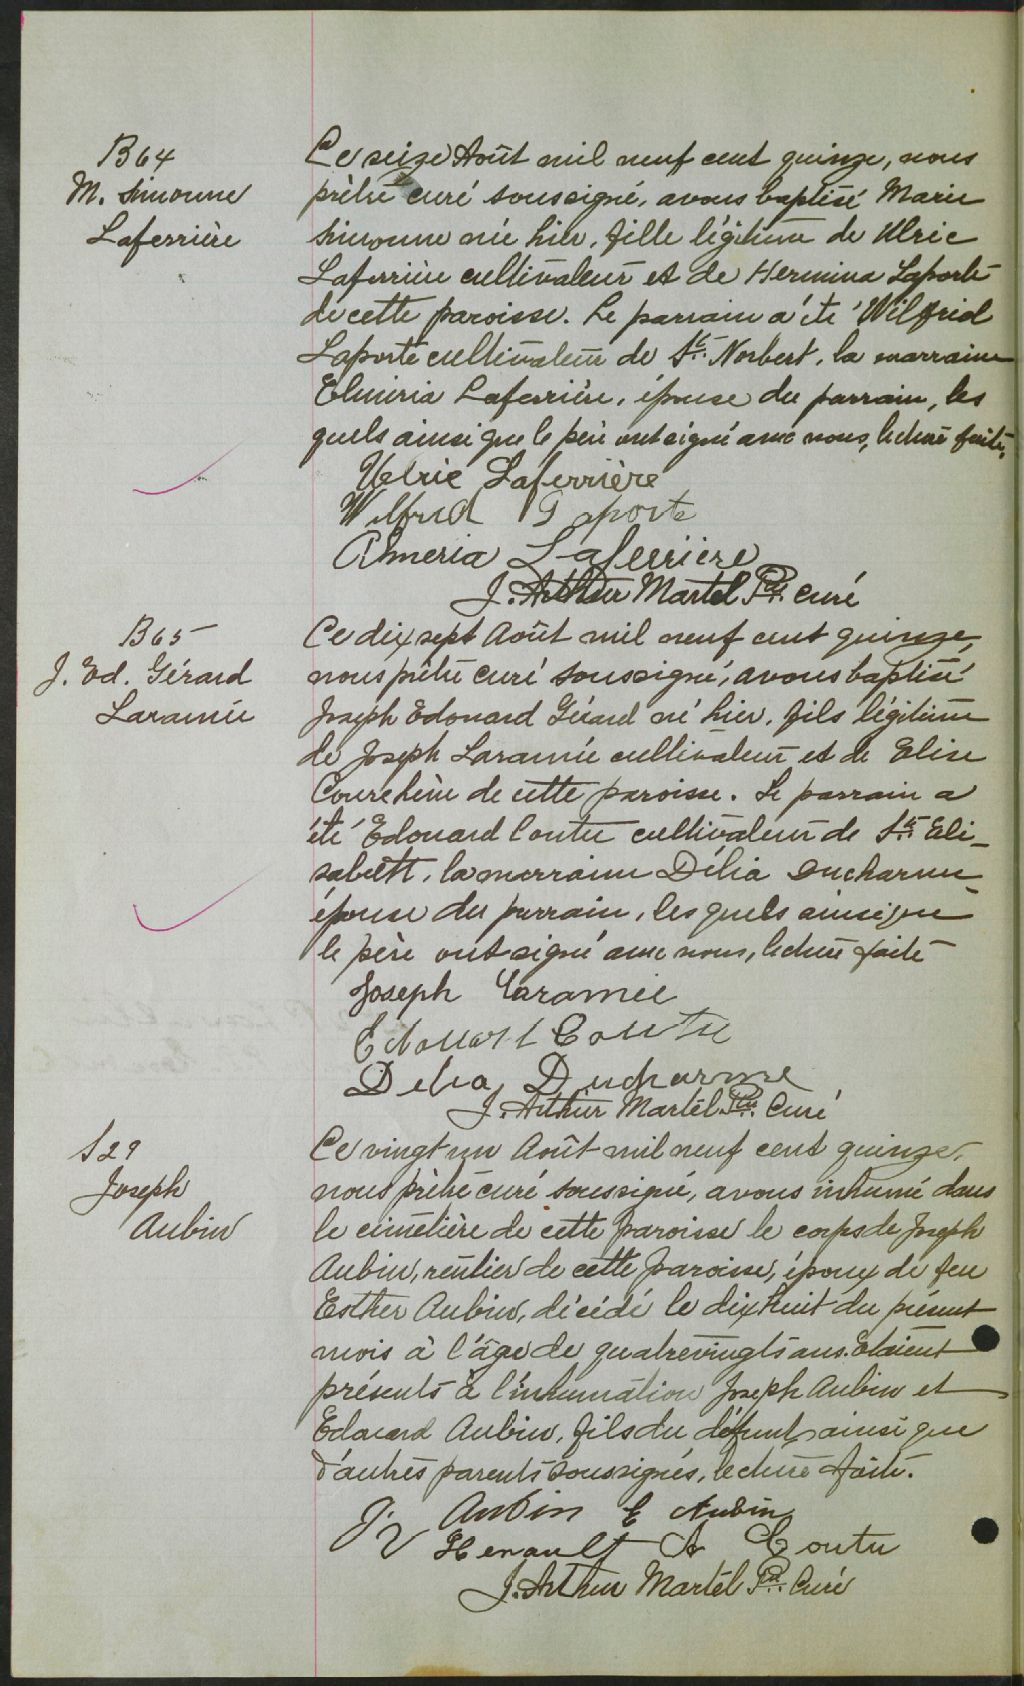 B 64
M. Simonne
Laferrière
Ce seize Août mil neuf cent quinze, nous
prêtre curé soussigné, avons baptisé Marie
Simonne née hier, fille légitime de Ulric
Laferrière cultivateur et de Hermina Laporte
de cette paroisse. Le parrain a été Wilfrid
Laporte cultivateur de St. Norbert, la marraine
Elmiria Laferrière, épouse du parrain, les
quels ainsi que le père ont signé avec nous, lecture faite.
Ulric Laferrière
Wilfrid Laporte
Almeria Laferrière
J. Arthur Martel Ptr. Curé
B 65
J. Ed. Gérard
Laramée
Ce dix sept Août mil neuf cent quinze,
nous prêtre curé soussigné, avons baptisé
Joseph Edouard Gérard né hier, fils légitime
de Joseph Laramée cultivateur et de Elise
Courchène de cette paroisse. Le parrain a
été Edouard Coutu cultivateur de Ste. Eli-
sabeth, la marraine Délia Ducharme
épouse du parrain, les quels ainsi que
le père ont signé avec nous, lecture faite
Joseph Laramée
Edouard Coutu
Delia Ducharme
J. Arthur Martel Ptr. Curé
S 29
Joseph
Aubin
Ce vingt un Août mil neuf cent quinze,
nous prêtre curé soussigné, avons inhumé dans
le cimetière de cette paroisse le corps de Joseph
Aubin, rentier de cette paroisse, époux de feu
Esther Aubin, décédé le dix huit du présent
mois à l'âge de quatre vingts ans. Etaient
présents à l'inhumation Joseph Aubin et
Edouard Aubin, fils du défunt ainsi que
d'autres parents soussignés, lecture faite.
J. Aubin E Aubin
Henault A Coutu
J. Arthur Martel Ptr. Curé